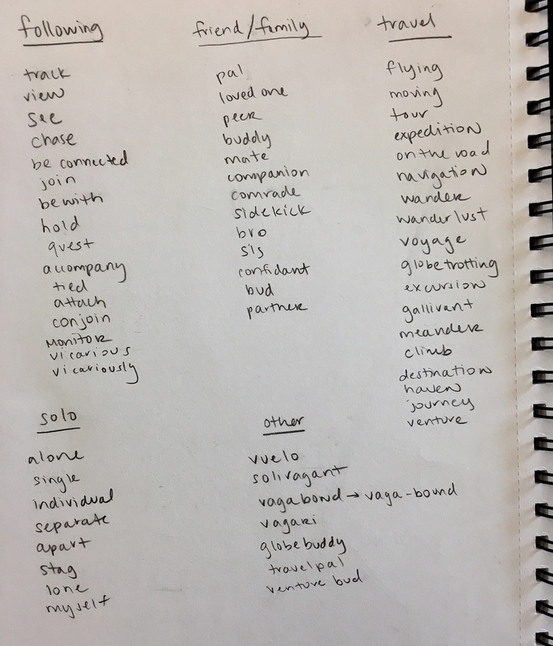 following
track
view
see
chase
be connected
join
be with
hold
quest
accompany
tied
attach
conjoin
monitor
vicarious
vicariously
friend/family
pal
loved one
peer
buddy
mate
companion
comrade
sidekick
bro
sis
confidant
bud
partner
travel
flying
moving
tour
expedition
on the road
navigation
wander
wanderlust
voyage
globetrotting
excursion
gallivant
meander
climb
destination
haven
journey
venture
solo
alone
single
individual
separate
apart
stag
lone
myself
other
vuelo
solivagant
vagabond → vaga-bound
vagari
globebuddy
travelpal
venture bud